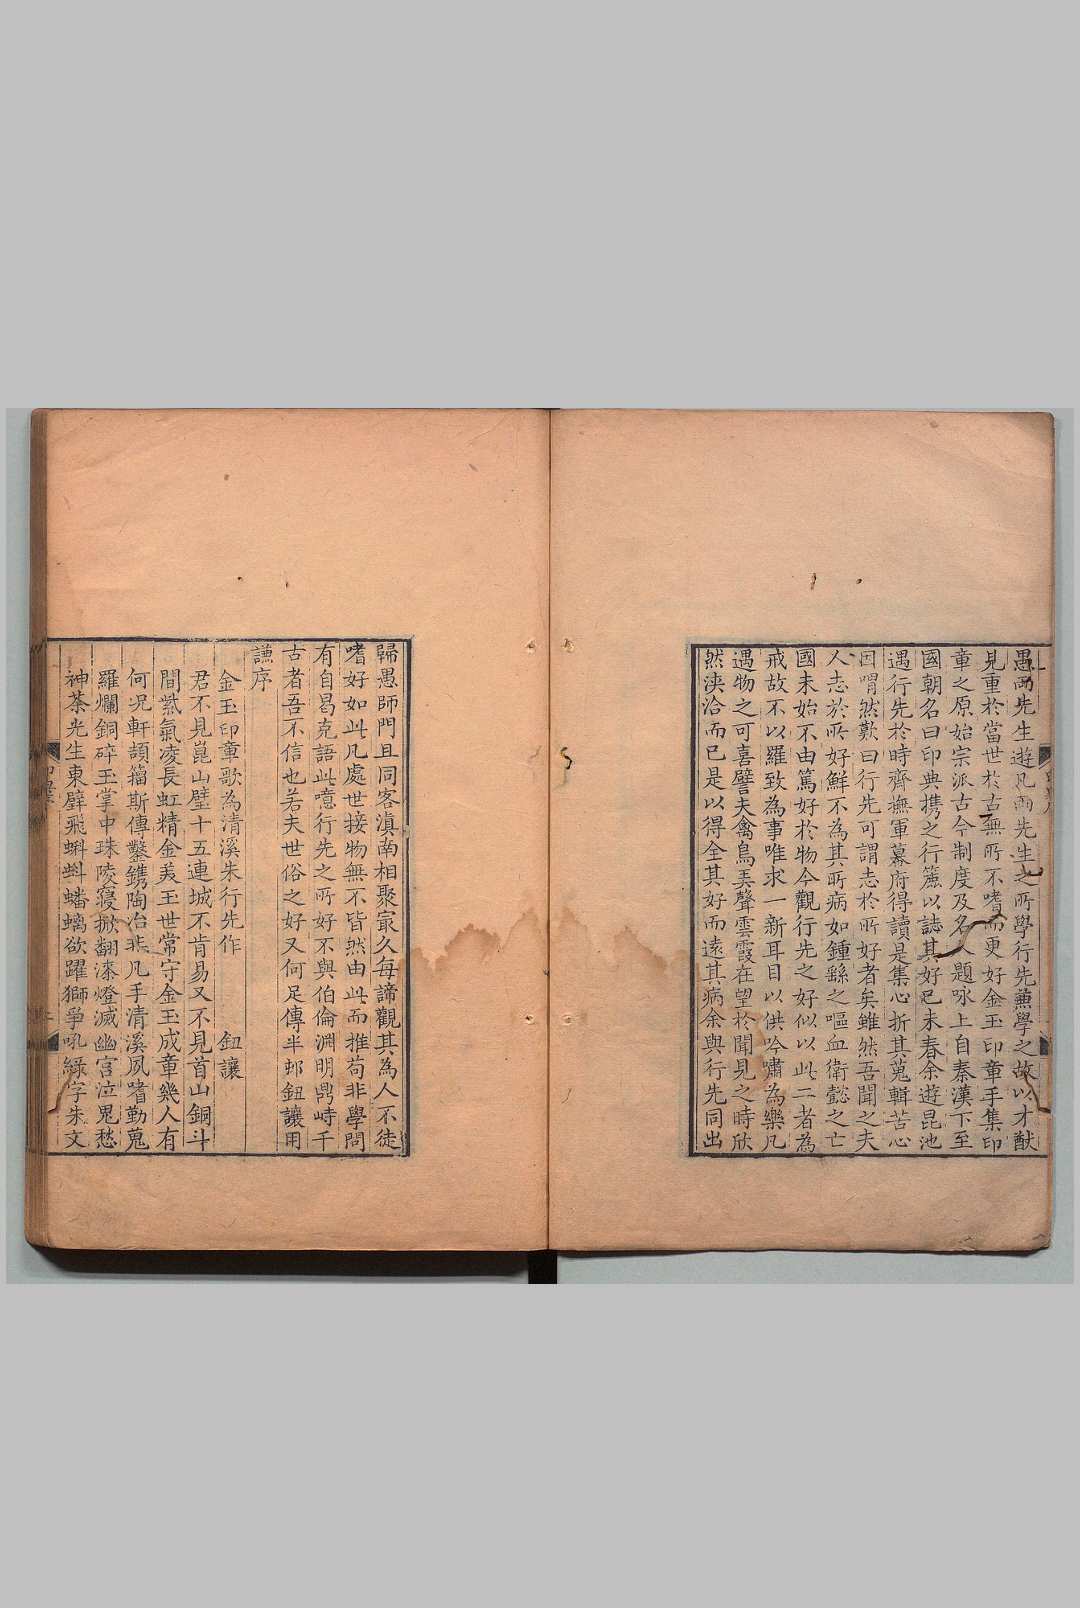 愚而先生遊凡而先生之所學行先蕪學之故以才猷
見重於當世於古無所不嗜而更好金玉印章手集印
章之原始宗派古今制度及名人題咏上自秦漢下至
國朝名曰印典攜之行篋以誌其好已未春余遊昆池
遇行先於時齋撫軍幕府得讀是集心折其蒐輯苦心
因喟然歎曰行先可謂志於所好者矣雖然吾聞之夫
人志於所好鮮不為其所病如鍾繇之嘔血衛懿之亡
國未始不由篤好於物今觀行先之好似以此二者為
戒故不以羅致為事唯求一新耳目以供吟嘯為樂凡
遇物之可喜譬夫禽鳥弄聲雲霞在望於聞見之時欣
然浹洽而已是以得全其好而遠其病余與行先同出
歸愚師門且同客滇南相聚㝡久每諦觀其為人不徒
嗜好如此凡處世接物無不皆然由此而推苟非學問
有自曷克語此噫行先之所好不與伯倫淵明鼎峙千
古者吾不信也若夫世俗之好又何足傳半邨鈕讓用
謙序
金玉印章歌為清溪朱行先作 鈕讓
君不見崑山璧十五連城不肯易又不見首山銅斗
間紫氣凌長虹精金美玉世常守金玉成章幾人有
何况軒頡籀斯傳鑿鐫陶冶非凡手清溪夙嗜勤蒐
羅爛銅碎玉掌中珠陵寢掀翻漆燈滅幽宮泣鬼愁
神荼光生東壁飛蝌蚪蟠螭欲躍獅爭吼綠字朱文